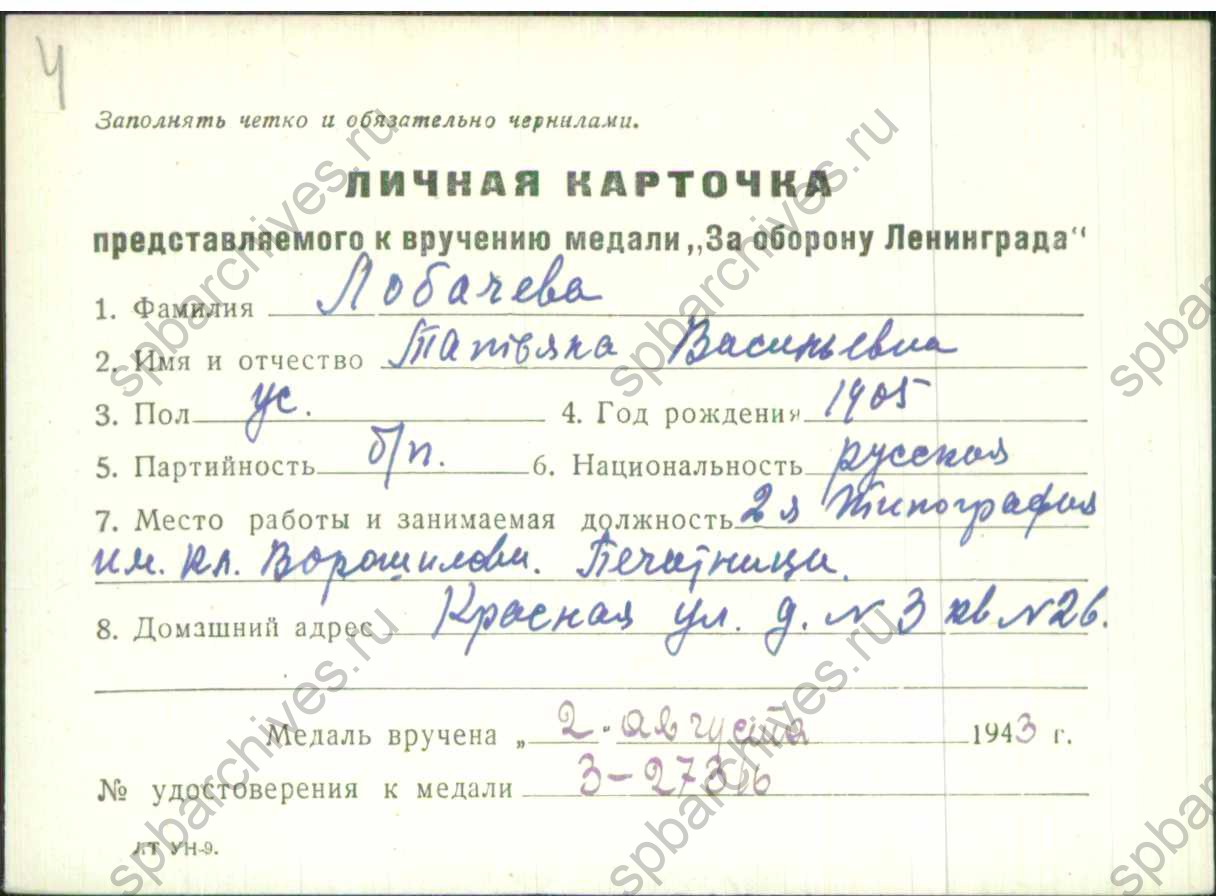 Ч
Заполнять четко и обязательно чернилами.
ЛИЧНАЯ КАРТОЧКА
представляемого к вручению медали „За оборону Ленинграда“
1. Фамилия Лобачева
2. Имя и отчество Татьяна Васильевна
3. Пол ж. 4. Год рождения 1905
5. Партийность б/п. 6. Национальность русская
7. Место работы и занимаемая должность 2я Типография
им. Кл. Ворошилова. Печатница.
8. Домашний адрес Красная ул. д. № 3 кв № 26.
Медаль вручена „ 2 " августа 1943 г.
№ удостоверения к медали
ЛТ УН-9.
spbarchives.ru
spbarchives.ru
spbarchives.ru
spbarchives.ru